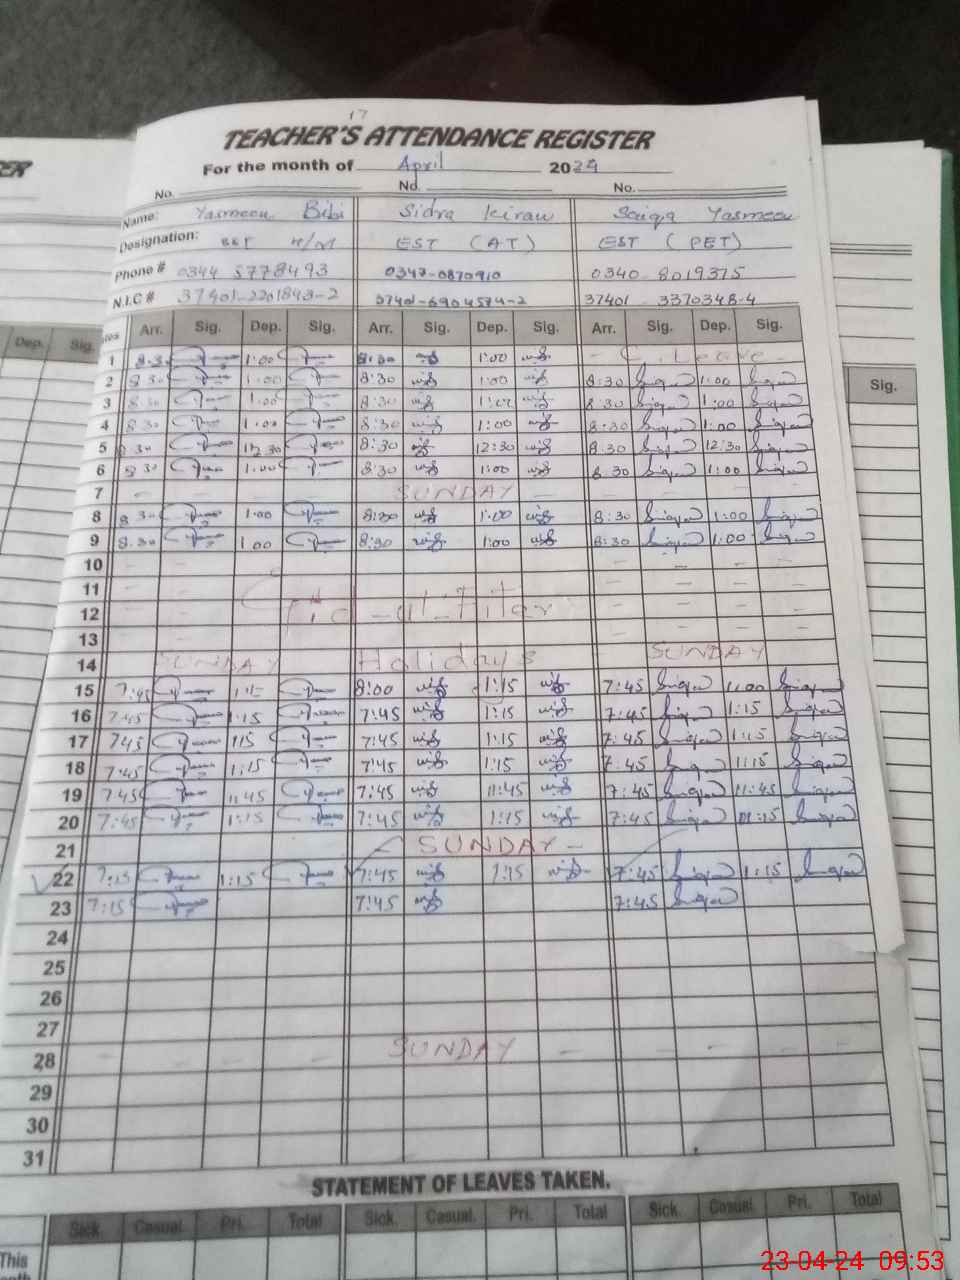 17
TEACHER'S ATTENDANCE REGISTER
For the month of April 2024
No. No. No.
Name: Yasmeen Bibi Sidra Kiran Saiqa Yasmeen
Designation: H/M EST (AT) EST (PET)
Phone # 0344 5778493 0347-0870910 0340-8019375
N.I.C # 37401-2201843-2 37401-6904574-2 37401 3370348-4
Dep. Sig. Arr. Sig. Dep. Sig. Arr. Sig. Dep. Sig. Arr. Sig. Dep. Sig. Sig.
1 8.30 1:00 8:30 1:00 - C. Leave -
2 8 30 1:00 8:30 1:00 8:30 1:00
3 8.30 1:00 8:30 8:30 1:00
4 8.30 1.00 8:30 1:00 8:30 1:00
5 8 30 12.30 8:30 12:30 8:30 12:30
6 8 30 1:00 8:30 1:00 8:30 1:00
7 - - - - SUNDAY - - - - -
8 8 30 1:00 8:30 1:00 8:30 1:00
9 8.30 1 00 8:30 1:00 8:30 1:00
10 - - - - - -
11 - - - -
12 - - Eid-ul-Fiter - - - -
13 - - - - - -
14 SUNDAY Holidays SUNDAY
15 7:45 8:00 1:15 7:45 1:00
16 7:45 1:15 7:45 1:15 7:45 1:15
17 7:45 1:15 7:45 1:15 7:45 1:15
18 7:45 1:15 7:45 1:15 7:45 1:15
19 7:45 11:45 7:45 11:45 7:45 11:45
20 7:45 1:15 7:45 1:15 7:45 1:15
21 - SUNDAY -
22 7:15 1:15 7:45 1:15 7:45 1:15
23 7:15 7:45 7:45
24
25
26
27
28 - - - - SUNDAY - - - - -
29
30
31
STATEMENT OF LEAVES TAKEN.
Sick. Casual. Pri. Total Sick. Casual. Pri. Total Sick. Casual. Pri. Total
This
23-04-24 09:53